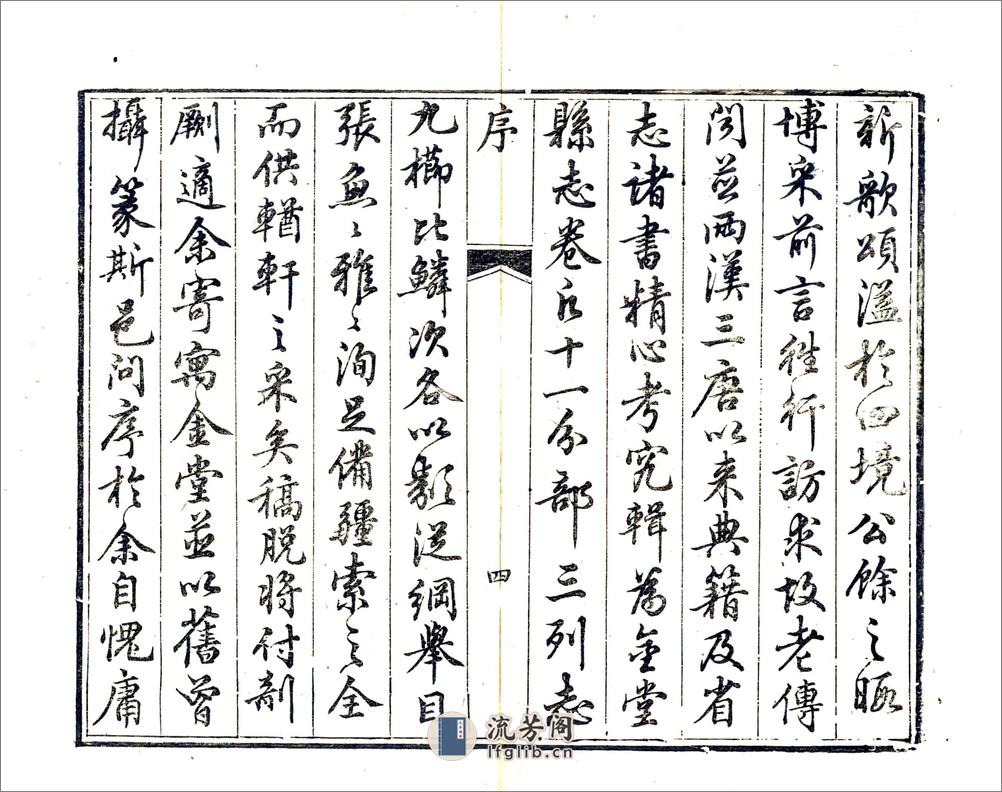 新歌頌溢於四境公餘之暇
博采前言往行訪求故老傳
聞並兩漢三唐以来典籍及省
志諸書精心考究輯為金堂
縣志卷凡十一分部三列志
序
四
九櫛比鱗次各以類從綱舉目
張魚〻雅〻洵足備疆索之全
而供輶軒之采矣稿脱將付剞
劂適余寄寓金堂並以舊曾
攝篆斯邑问序於余自愧庸
流芳阁
lfglib.cn